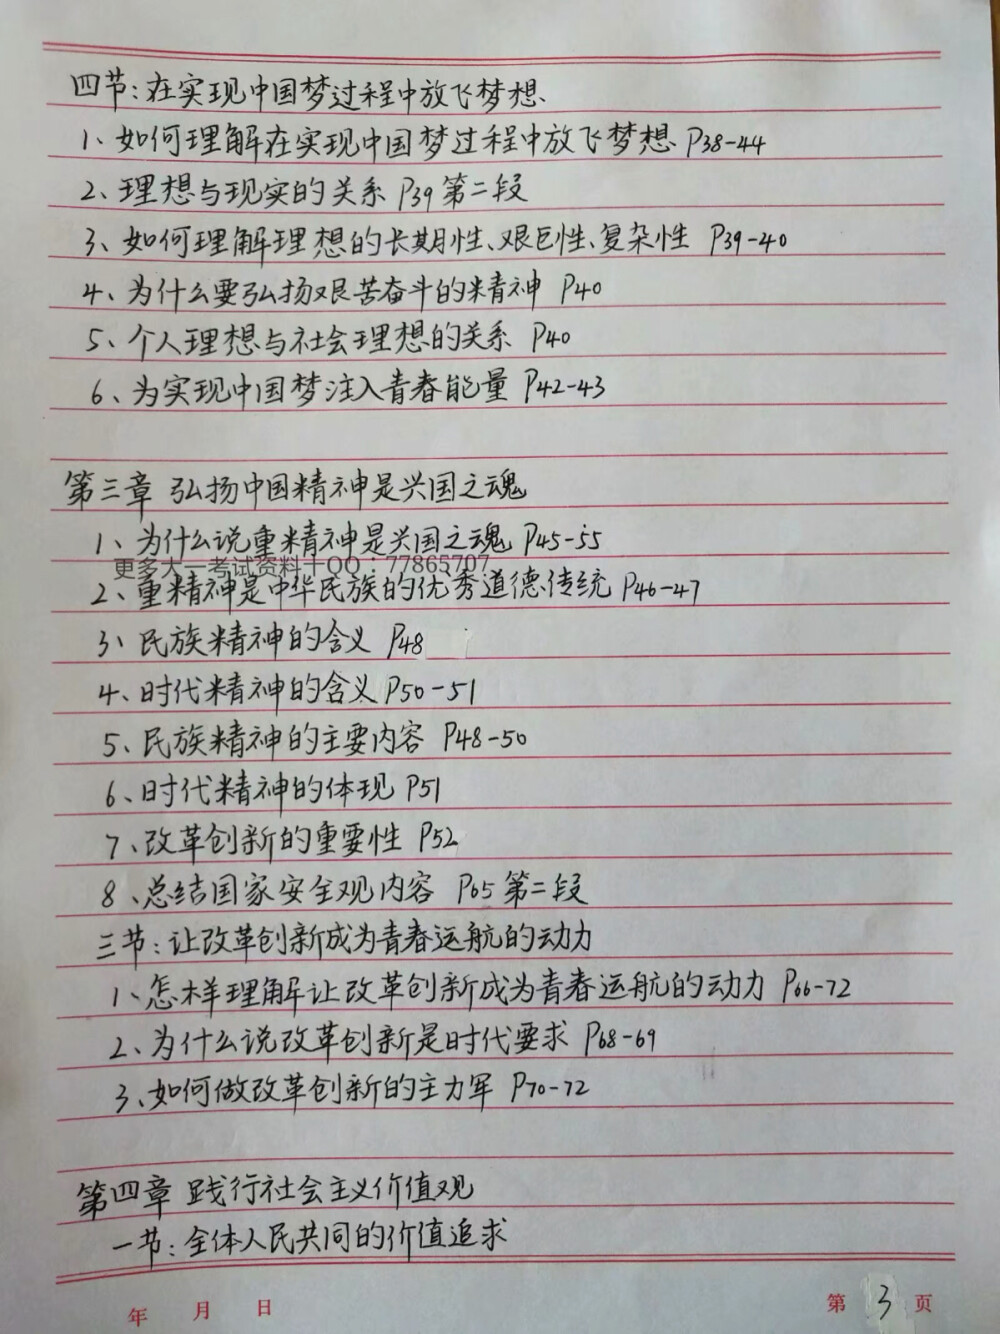 四节：在实现中国梦过程中放飞梦想
1、如何理解在实现中国梦过程中放飞梦想 P38-44
2、理想与现实的关系 P39 第二段
3、如何理解理想的长期性、艰巨性、复杂性 P39-40
4、为什么要弘扬艰苦奋斗的精神 P40
5、个人理想与社会理想的关系 P40
6、为实现中国梦注入青春能量 P42-43
第三章 弘扬中国精神是兴国之魂
1、为什么说重精神是兴国之魂 P45-55
更多大一考试资料＋QQ：77865707
2、重精神是中华民族的优秀道德传统 P46-47
3、民族精神的含义 P48
4、时代精神的含义 P50-51
5、民族精神的主要内容 P48-50
6、时代精神的体现 P51
7、改革创新的重要性 P52
8、总结国家安全观内容 P65 第二段
三节：让改革创新成为青春运航的动力
1、怎样理解让改革创新成为青春运航的动力 P66-72
2、为什么说改革创新是时代要求 P68-69
3、如何做改革创新的主力军 P70-72
第四章 践行社会主义价值观
一节：全体人民共同的价值追求
年 月 日 第 3 页